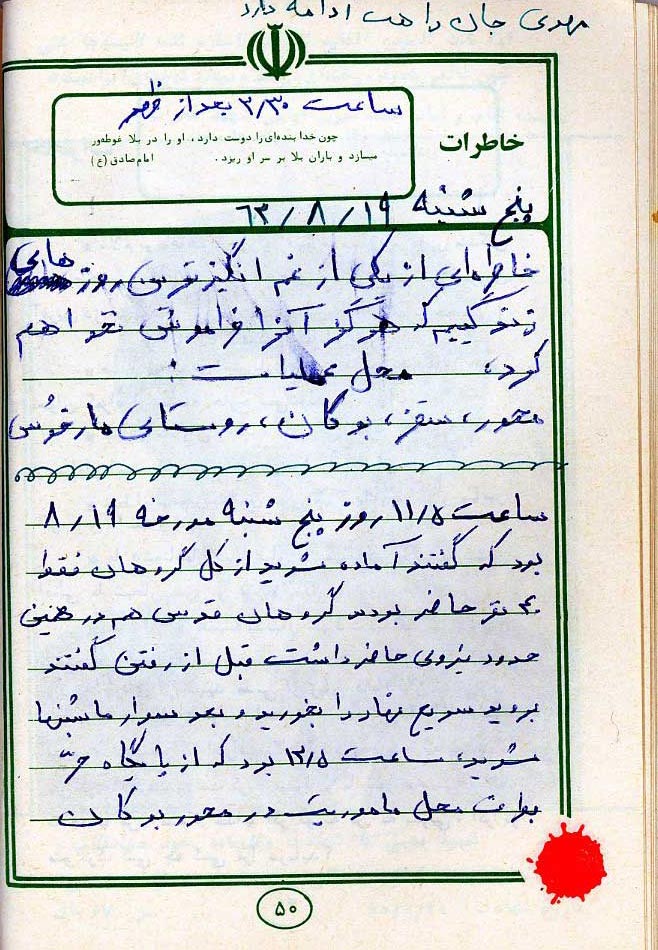 مهدی جان راهت ادامه دارد
ساعت ۳/۳۰ بعد از ظهر
خاطرات
چون خدا بنده‌ای را دوست دارد، او را در بلا غوطه‌ور
میسازد و باران بلا بر سر او ریزد. امام صادق (ع)
پنج شنبه ۶۳/۸/۱۹
خاطره‌ای از یکی از غم انگیزترین روزهای
زندگییم که هرگز آنرا فراموش نخواهم
کرد، محل عملیات:
محور، سقز، بوکان، روستای مارغوس
ساعت ۱۱/۵ روز پنج شنبه مورخه ۸/۱۹
بود که گفتند آماده شوید از کل گروهان فقط
۴۰ نفر حاضر بودند گروهان قدس هم در همین
حدود نیروی حاضر داشت قبل از رفتن گفتند
بروید سریع نهار را بخورید و بعد سوار ماشینها
شوید، ساعت ۱۲/۵ بود که از پایگاه حرّ
بطرف محل ماموریت در محور بوکان
۵۰